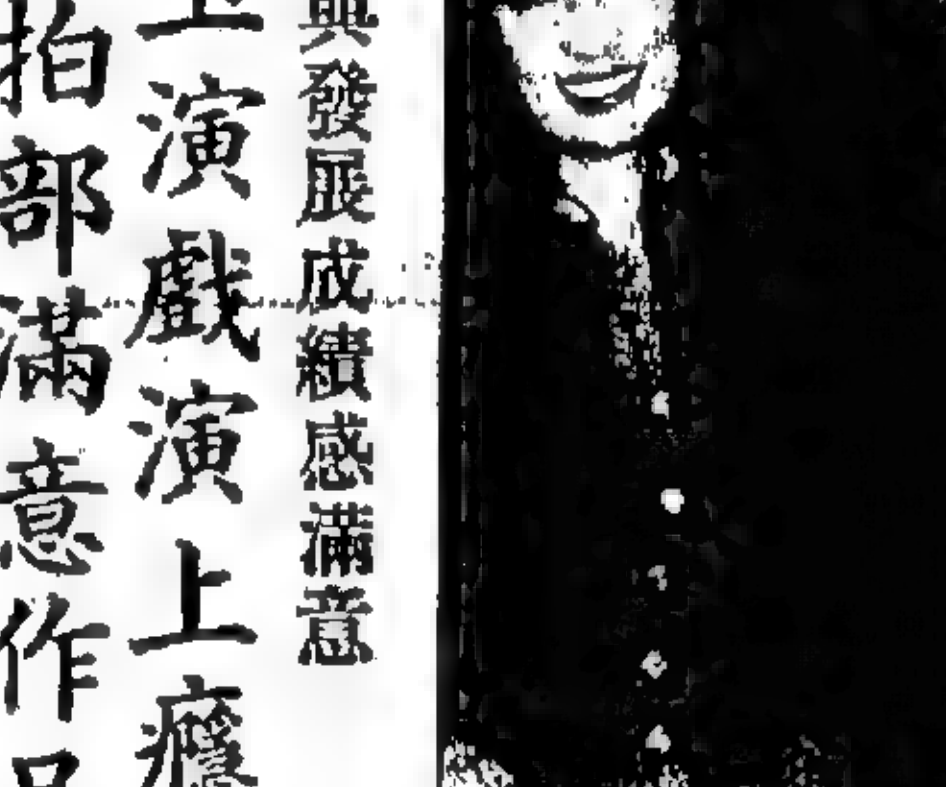 發展成績感滿意
上演戲演上癮
拍部滿意作品